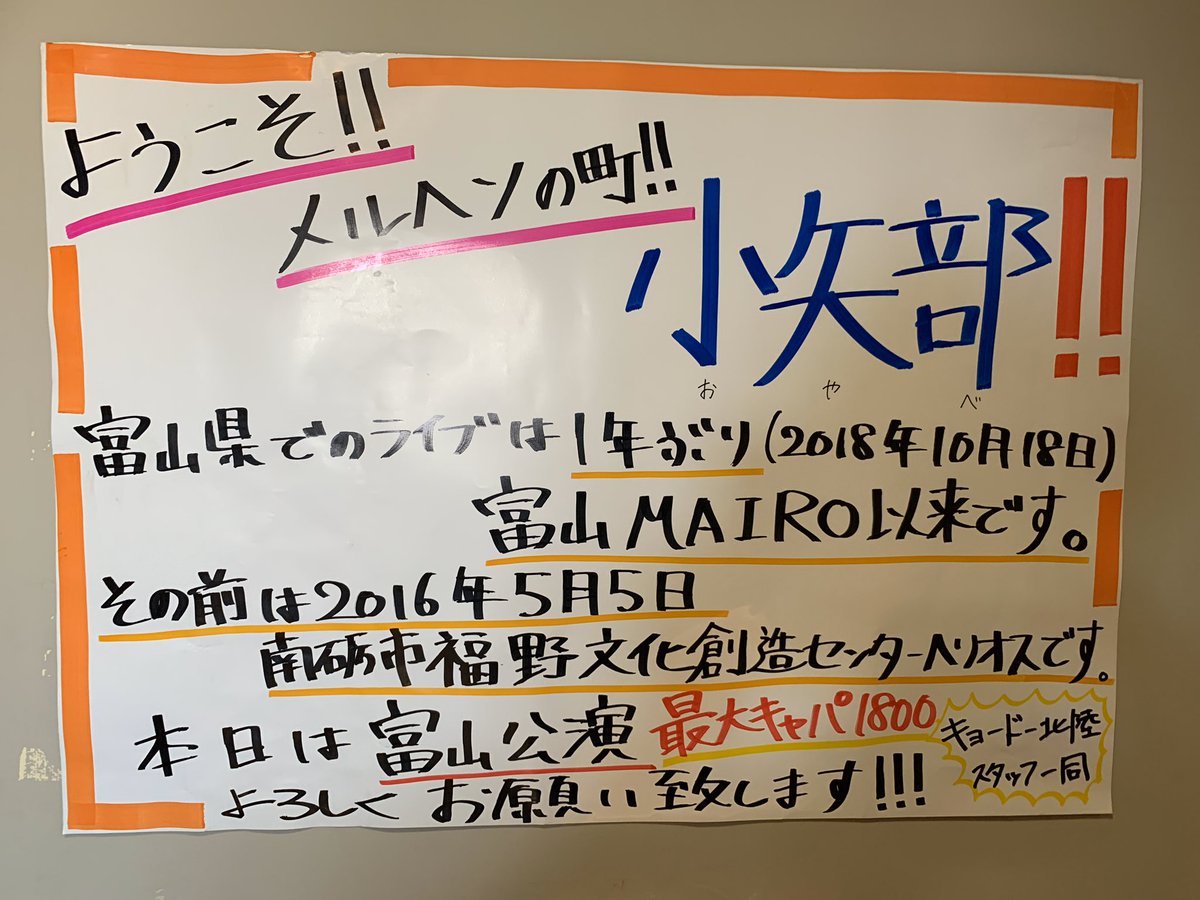 ようこそ!!
メルヘンの町!!
小矢部!!
おやべ
富山県でのライブは1年ぶり(2018年10月18日)
富山MAIRO以来です。
その前は2016年5月5日
南砺市福野文化創造センターヘリオスです。
本日は富山公演 最大キャパ1800
よろしくお願い致します!!!
キョードー北陸
スタッフ一同